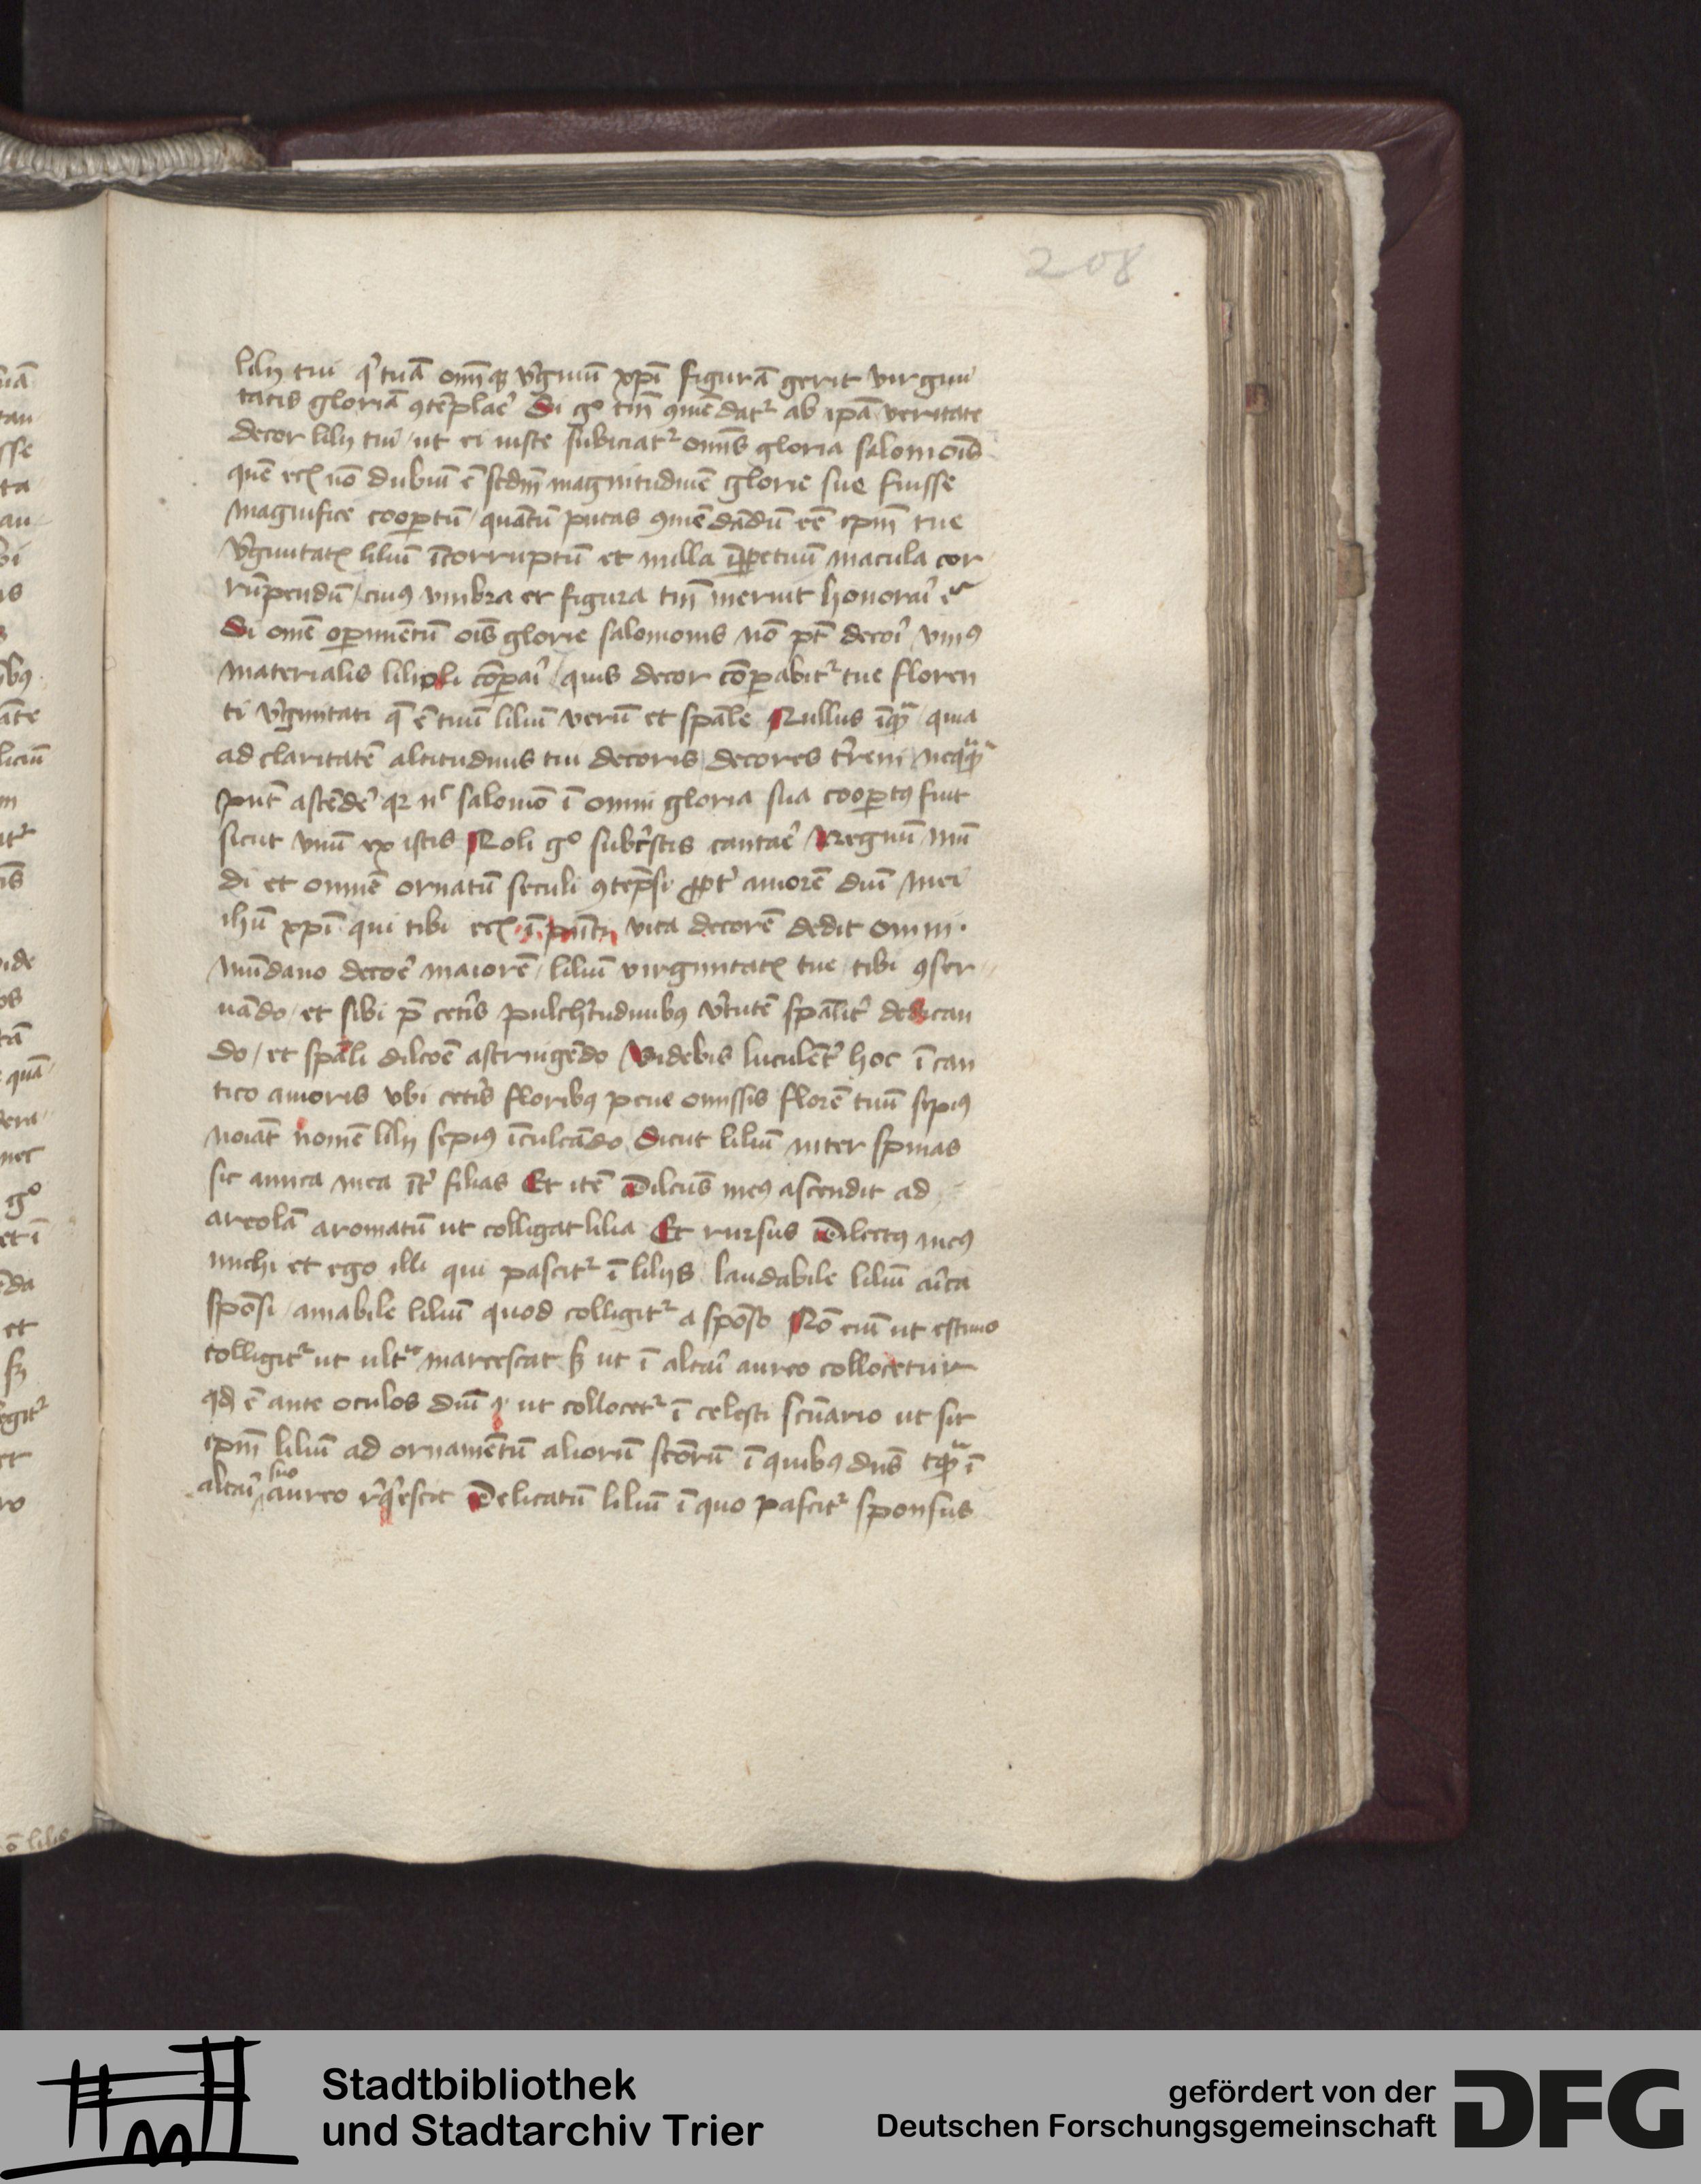 208
lilij tui q' tuā om̄q; v'ginū xpī figurā gerit virgini
tatis gloriā 9tēplaē Si g° tm̄ 9mēdat2 ab ipā veritate
decor lilij tui / ut ei iuste subiciat2 om̄is gloria salomōis
quē eciā nō dubiū ē scdm̄ magnitudinē glorie sue fuisse
magnifice coopertū / quātū putas 9mēdādū eē ipm̄ tue
v'ginitatis liliū īcorruptū et nulla īperpetuū macula cor
rūpendū / cui9 vmbra et figura tm̄ meruit honorari
Si om̄e operimētū ois glorie salomonis nō pt̄ decori vni9
materialis lilioli cōpari / quis decor cōparabit2 tue floren
ti v'ginitati q̄ ē tuū liliū verū et spāle Nullus īquā / quia
ad claritatē altitudinis tui decoris / decores t'reni / neqquā
pnt̄ ascēdē q2 nec salomō ī omni gloria sua coopert9 fuit
sicut vnū ex istis Noli g° cantaē Regnū mū
di et omnē ornatū seculi 9tēpsi ppt' amorē dnī mei
ihū xpī qui tibi eciā ī pn̄ti vita decorē dedit omni
mūdano decoē maiorē / liliū virginitatis tue / tibi 9ser
uādo / et sibi p̄ cetis pulch'tudinib9 v'tutē spālit' dedican
do / et spāli dilcōē astringēdo Videbis luculēt' hoc ī can
tico amoris vbi cetis florib9 pene omissis florē tuū sepi9
noīat nomē lilij sepi9 īculcādo Sicut liliū inter spinas
sic amica mea īt' filias Et itē Dilcūs me9 ascendit ad
areolā aromatū ut colligat lilia Et rursus Dilect9 me9
michi et ego illi qui pascit2 ī lilijs laudabile liliū aīca
spōsi / amabile liliū quod colligit2 a spōso Nō eni ut estimo
colligit2 ut marcescat s3 ut ī altari aureo collocetur
qd ē ante oculos dnī ut collocet2 ī celesti scūario ut sit
ipm̄ liliū ad ornamētū aliorū scōrū ī quib9 dn̄s tqm ī
altari suo aureo req'escit Delicatū liliū ī quo pascit2 sponsus
Stadtbibliothek
und Stadtarchiv Trier
gefördert von der
Deutschen Forschungsgemeinschaft
DFG